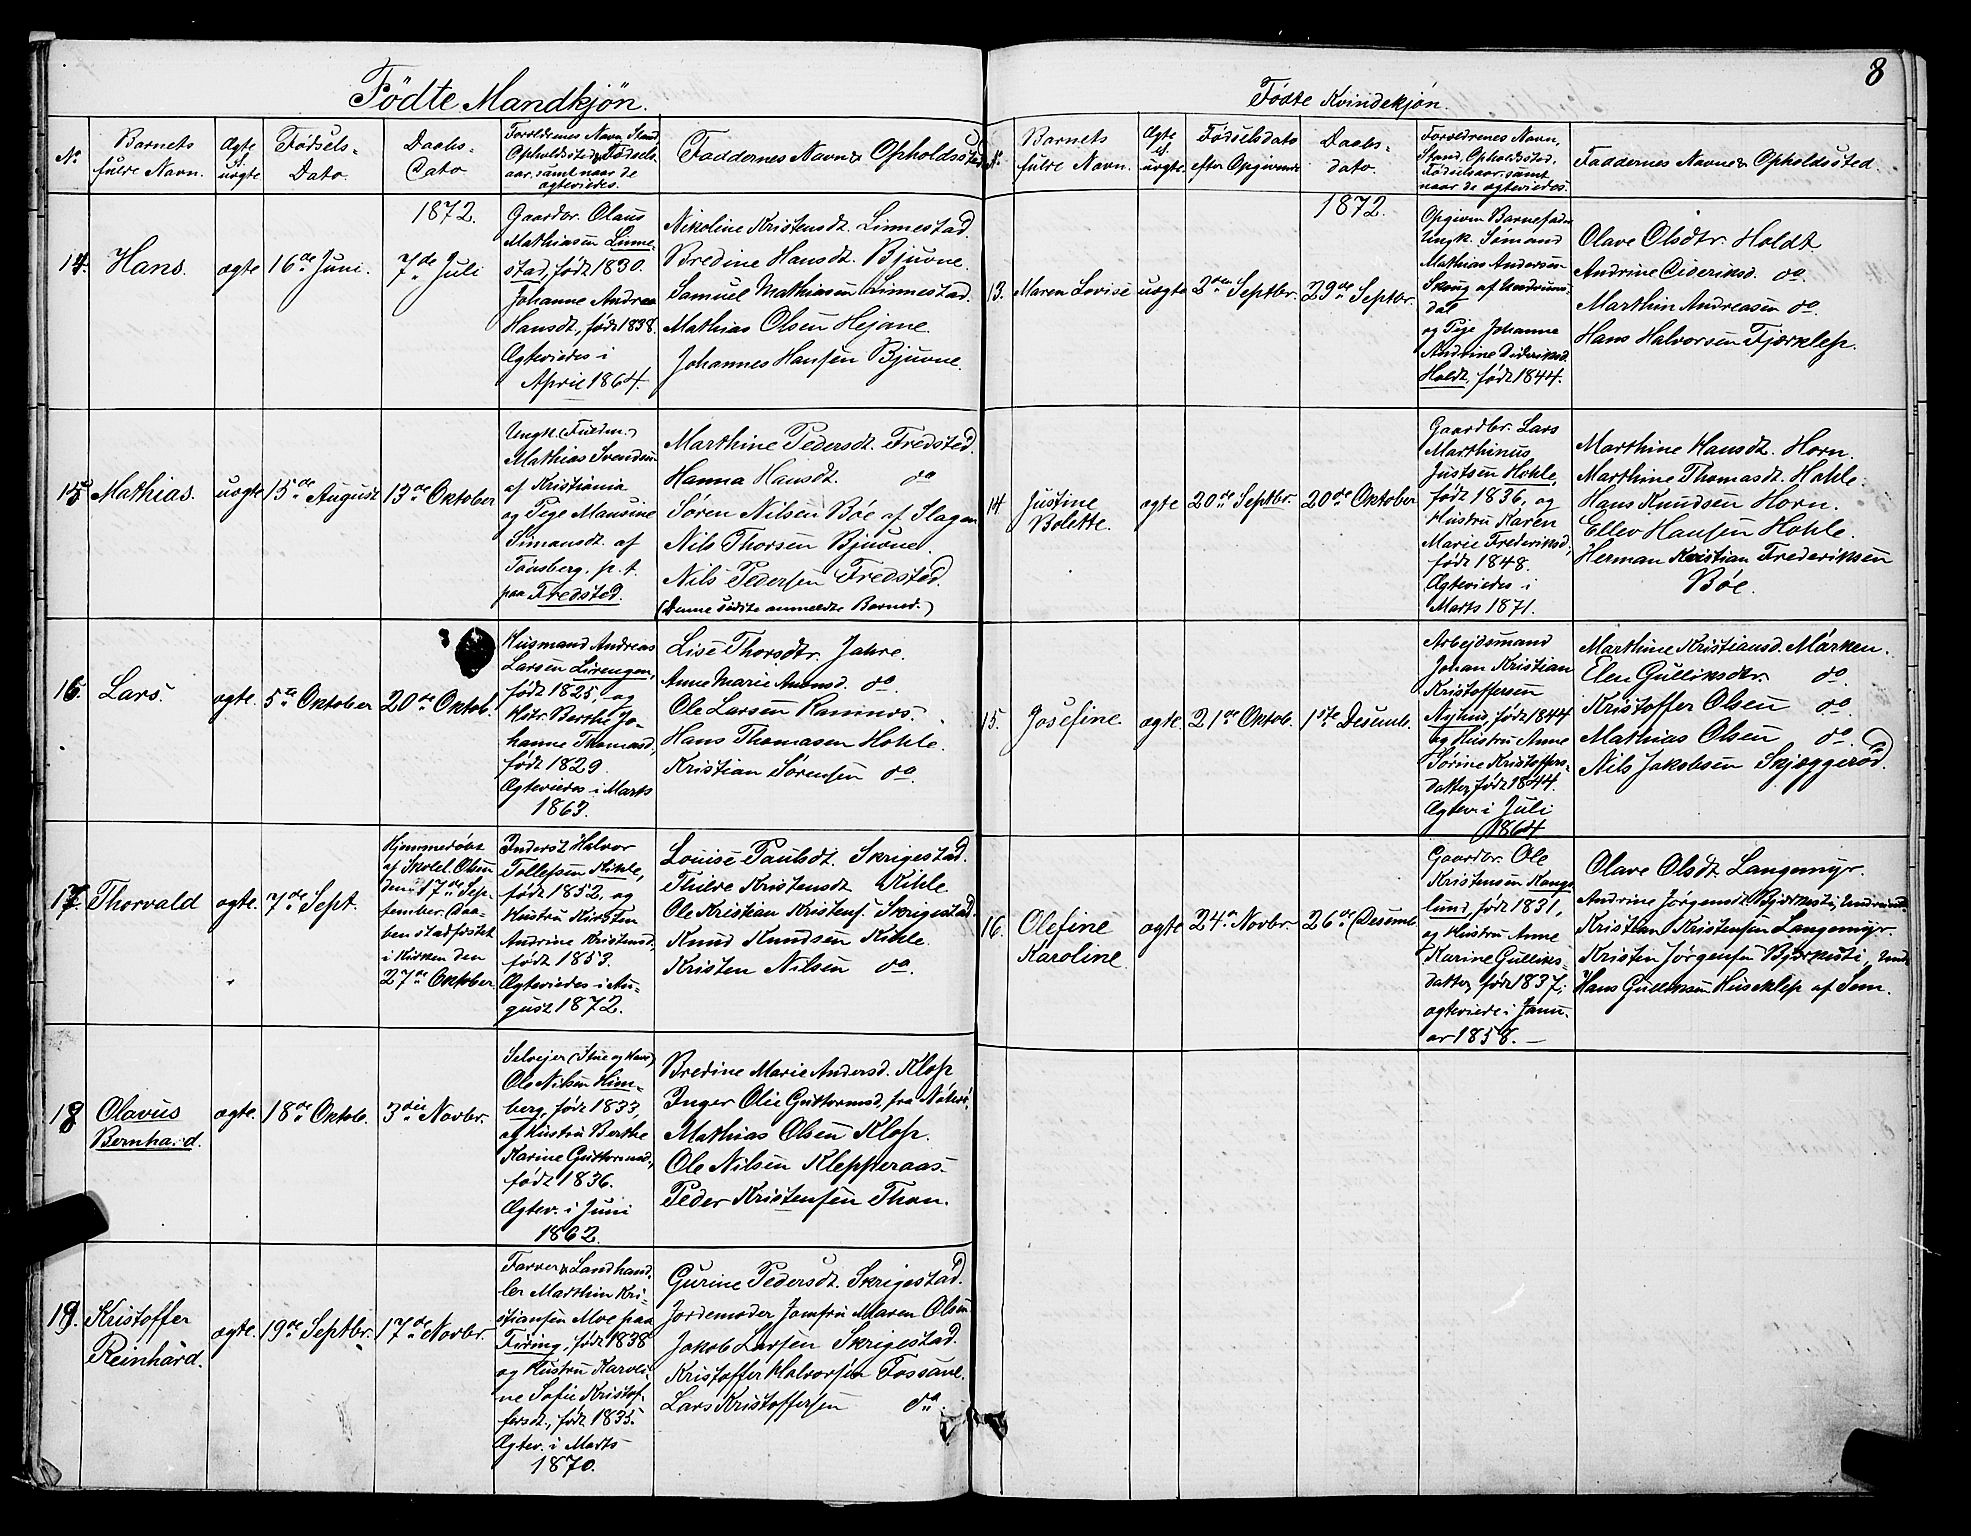 Födte Mandkjön.
No
Barnets
fulde Navn.
Ægte
el.
uægte
Födsels-
Dato.
Daabs-
Dato
Forældrenes Navn, Stand
Opholdssted & Födsels-
aar, samt naar de
ægteviedes.
Faddernes Navn & Opholdssted
14.
Hans.
ægte
16de Juni.
1872.
7de Juli
Gaardbr. Olaus
Mathiasen Linne-
stad, född 1830.
Johanne Andrea
Hansdt., född 1838.
Ægteviedes i
April 1864.
Nikoline Kristensdt. Linnestad.
Bredine Hansdt. Bjuvne.
Samuel Mathiasen Linnestad.
Mathias Olsen Hejane.
Johannes Hansen Bjuvne.
15
Mathias.
uægte
15de August
13de Oktober
Ungk.
Mathias Svendsen
af Kristiania
og Pige Mausine
Simonsdt. af
Tönsberg. p. t.
paa Fredsted.
Marthine Pedersdt. Fredsted.
Hanna Hansdt. do
Sören Nilsen Böe af Slagen
Nils Thorsen Bjuvne.
Nils Pedersen Fredsted.
(Denne sidste anmeldte Barnet.)
16.
Lars.
ægte.
5te Oktober
20de Oktob.
Husmand Andreas
Larsen Lirengen,
född 1825, og
Hstr. Berthe Jo-
hanne Thomasd,
född 1829.
Ægteviedes i Marts
1863.
Lise Thorsdtr. Jahre.
Anne Marie Amundsd. do
Ole Larsen Ramnes.
Hans Thomasen Hohle.
Kristian Sörensen do.
17.
Thorvald
ægte.
7de Sept.
Hjemmedöbt
af Skolel. Olsen
den 17de Sep-
tember. Daa-
ben stadfæstet
i Kirken den
27de Oktober.
Inderst Halvor
Tollefsen Kihle,
född 1852, og
Hustru Kirsten
Andrine Kristensd.
född 1853.
Ægteviedes i Au-
gust 1872.
Louise Paulsdt. Skrigestad.
Thilde Kristensdt Kihle.
Ole Kristian Kristens. Skrigestad.
Knud Knudsen Kihle.
Kristen Nilsen do.
18
Olavus
Bernhard.
ægte.
18de Oktob.
3die Novbr.
Selvejer
Ole Nilsen Him-
berg, född 1833,
og Hustru Berthe
Karine Guttormsd,
född 1836.
Ægtev. i Juni
1862.
Bredine Marie Andersd. Klop
Inger Olie Guttormsd, fra Nöterö.
Mathias Olsen Klop.
Ole Nilsen Klepperaas.
Peder Kristensen Thon.
19.
Kristoffer
Reinhard.
ægte.
19de Septbr.
17de Novbr.
Farver & Landhand-
ler Marthin Kri-
stiansen Moe paa
Firing, född 1838
og Hustru Karoli-
ne Sofie Kristof-
fersdt., född 1835.
Ægtev. i Marts
1870.
Gurine Pedersdt. Skrigestad.
Jordemoder Jomfru Maren Olsen
Jakob Larsen Skrigestad.
Kristoffer Halvorsen Fossane.
Lars Kristoffersen do.
8
Födte Kvindekjön.
Barnets
fulde Navn.
Ægte
el.
uægte.
Födselsdato
efter Opgivende
Daabs-
dato.
Forældrenes Navn,
Stand, Opholdssted,
Födselsaar, samt
naar de ægteviedes.
Faddernes Navne & Opholdssted.
13.
Maren Lovise
uægte
2den Septbr.
1872.
29de Septbr.
Opgiven Barnefader
Ungk. Sömand
Mathias Anderses-
Skoug af Undrums-
dal
og Pige Johanne
Andrine Dideriksd.
Holdt, född 1844.
Olave Olsdtr. Holdt
Andrine Dideriksd. do
Marthin Andreasen do.
Hans Halvorsen Fjærklep.
14
Justine
Bolette.
ægte
20de Septbr.
20de Oktober
Gaardbr. Lars
Marthinus
Justsen Hohle,
född 1836, og
Hustru Karen
Marie Frederiksd,
född 1848.
Ægteviedes i
Marts 1871.
Marthine Hansdt. Horn.
Marthine Thomasdt. Hohle.
Hans Knudsen Horn.
Ellev Hansen Hohle.
Herman Kristian Frederiksen
Böe.
15.
Josefine
ægte.
21de Oktob.
1ste Desemb.
Arbejdsmand
Johan Kristian
Kristoffersen
Nyhus, född 1844
og Hustru Anne
Sörine Kristoffers-
datter, född 1844.
Ægtev. i Juli
1864
Marthine Kristiansd. Mörken.
Elen Gulliksdtr. do.
Kristoffer Olsen do.
Mathias Olsen do.
Nils Jakobsen Skjæggeröd.
16.
Olefine
Karoline.
ægte
24. Novbr.
26de Desemb.
Gaardbr. Ole
Kristensen Haugs-
lund, född 1831,
og Hustru Anne
Karine Gulliks-
datter, född 1837,
ægteviede i Janu-
ar 1858.
Olave Olsdt Langemyr.
Andrine Jörgensdt Bjerkesti,
Kristian Kristensen Langemyr.
Kristen Jörgensen Bjerkesti,
Hans Gulliksen Huseklep af Sem.